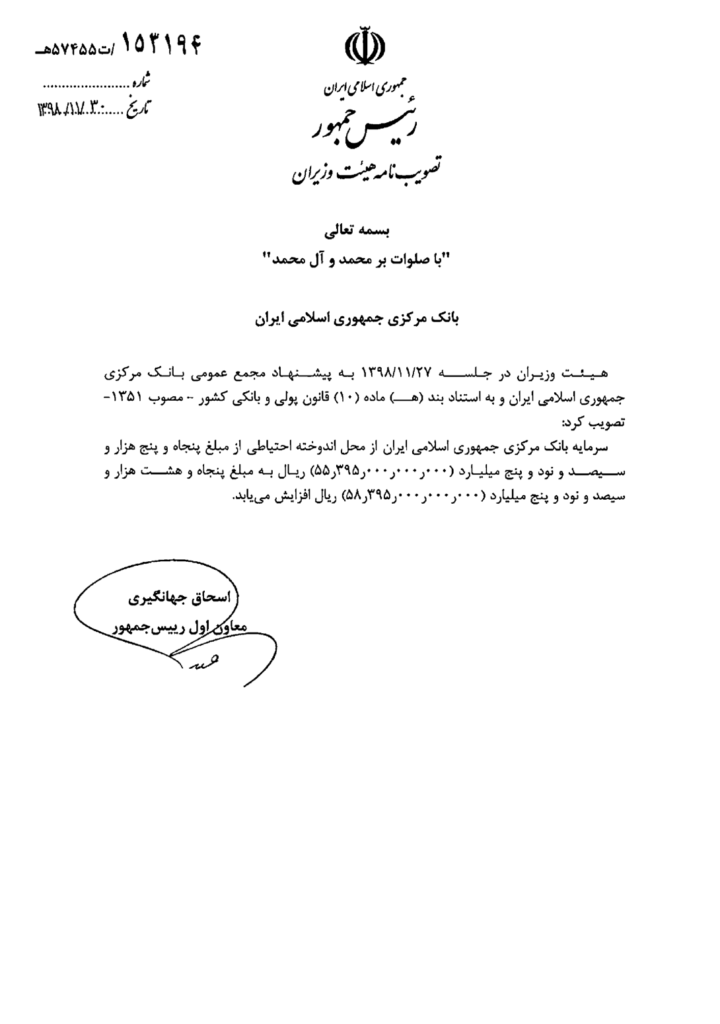 ۱۵۳۱۹۴/ت۵۷۴۵۵هـ
شماره ......................
تاریخ ۱۳۹۸/۱۱/۳۰
جمهوری اسلامی ایران
رئیس جمهور
تصویب نامه هیئت وزیران
بسمه تعالی
"با صلوات بر محمد و آل محمد"
بانک مرکزی جمهوری اسلامی ایران
هیئت وزیران در جلسه ۱۳۹۸/۱۱/۲۷ به پیشنهاد مجمع عمومی بانک مرکزی
جمهوری اسلامی ایران و به استناد بند (هـ) ماده (۱۰) قانون پولی و بانکی کشور – مصوب ۱۳۵۱-
تصویب کرد:
سرمایه بانک مرکزی جمهوری اسلامی ایران از محل اندوخته احتیاطی از مبلغ پنجاه و پنج هزار و
سیصد و نود و پنج میلیارد (۵۵ر۳۹۵ر۰۰۰ر۰۰۰ر۰۰۰) ریال به مبلغ پنجاه و هشت هزار و
سیصد و نود و پنج میلیارد (۵۸ر۳۹۵ر۰۰۰ر۰۰۰ر۰۰۰) ریال افزایش می‌یابد.
اسحاق جهانگیری
معاون اول رییس‌جمهور